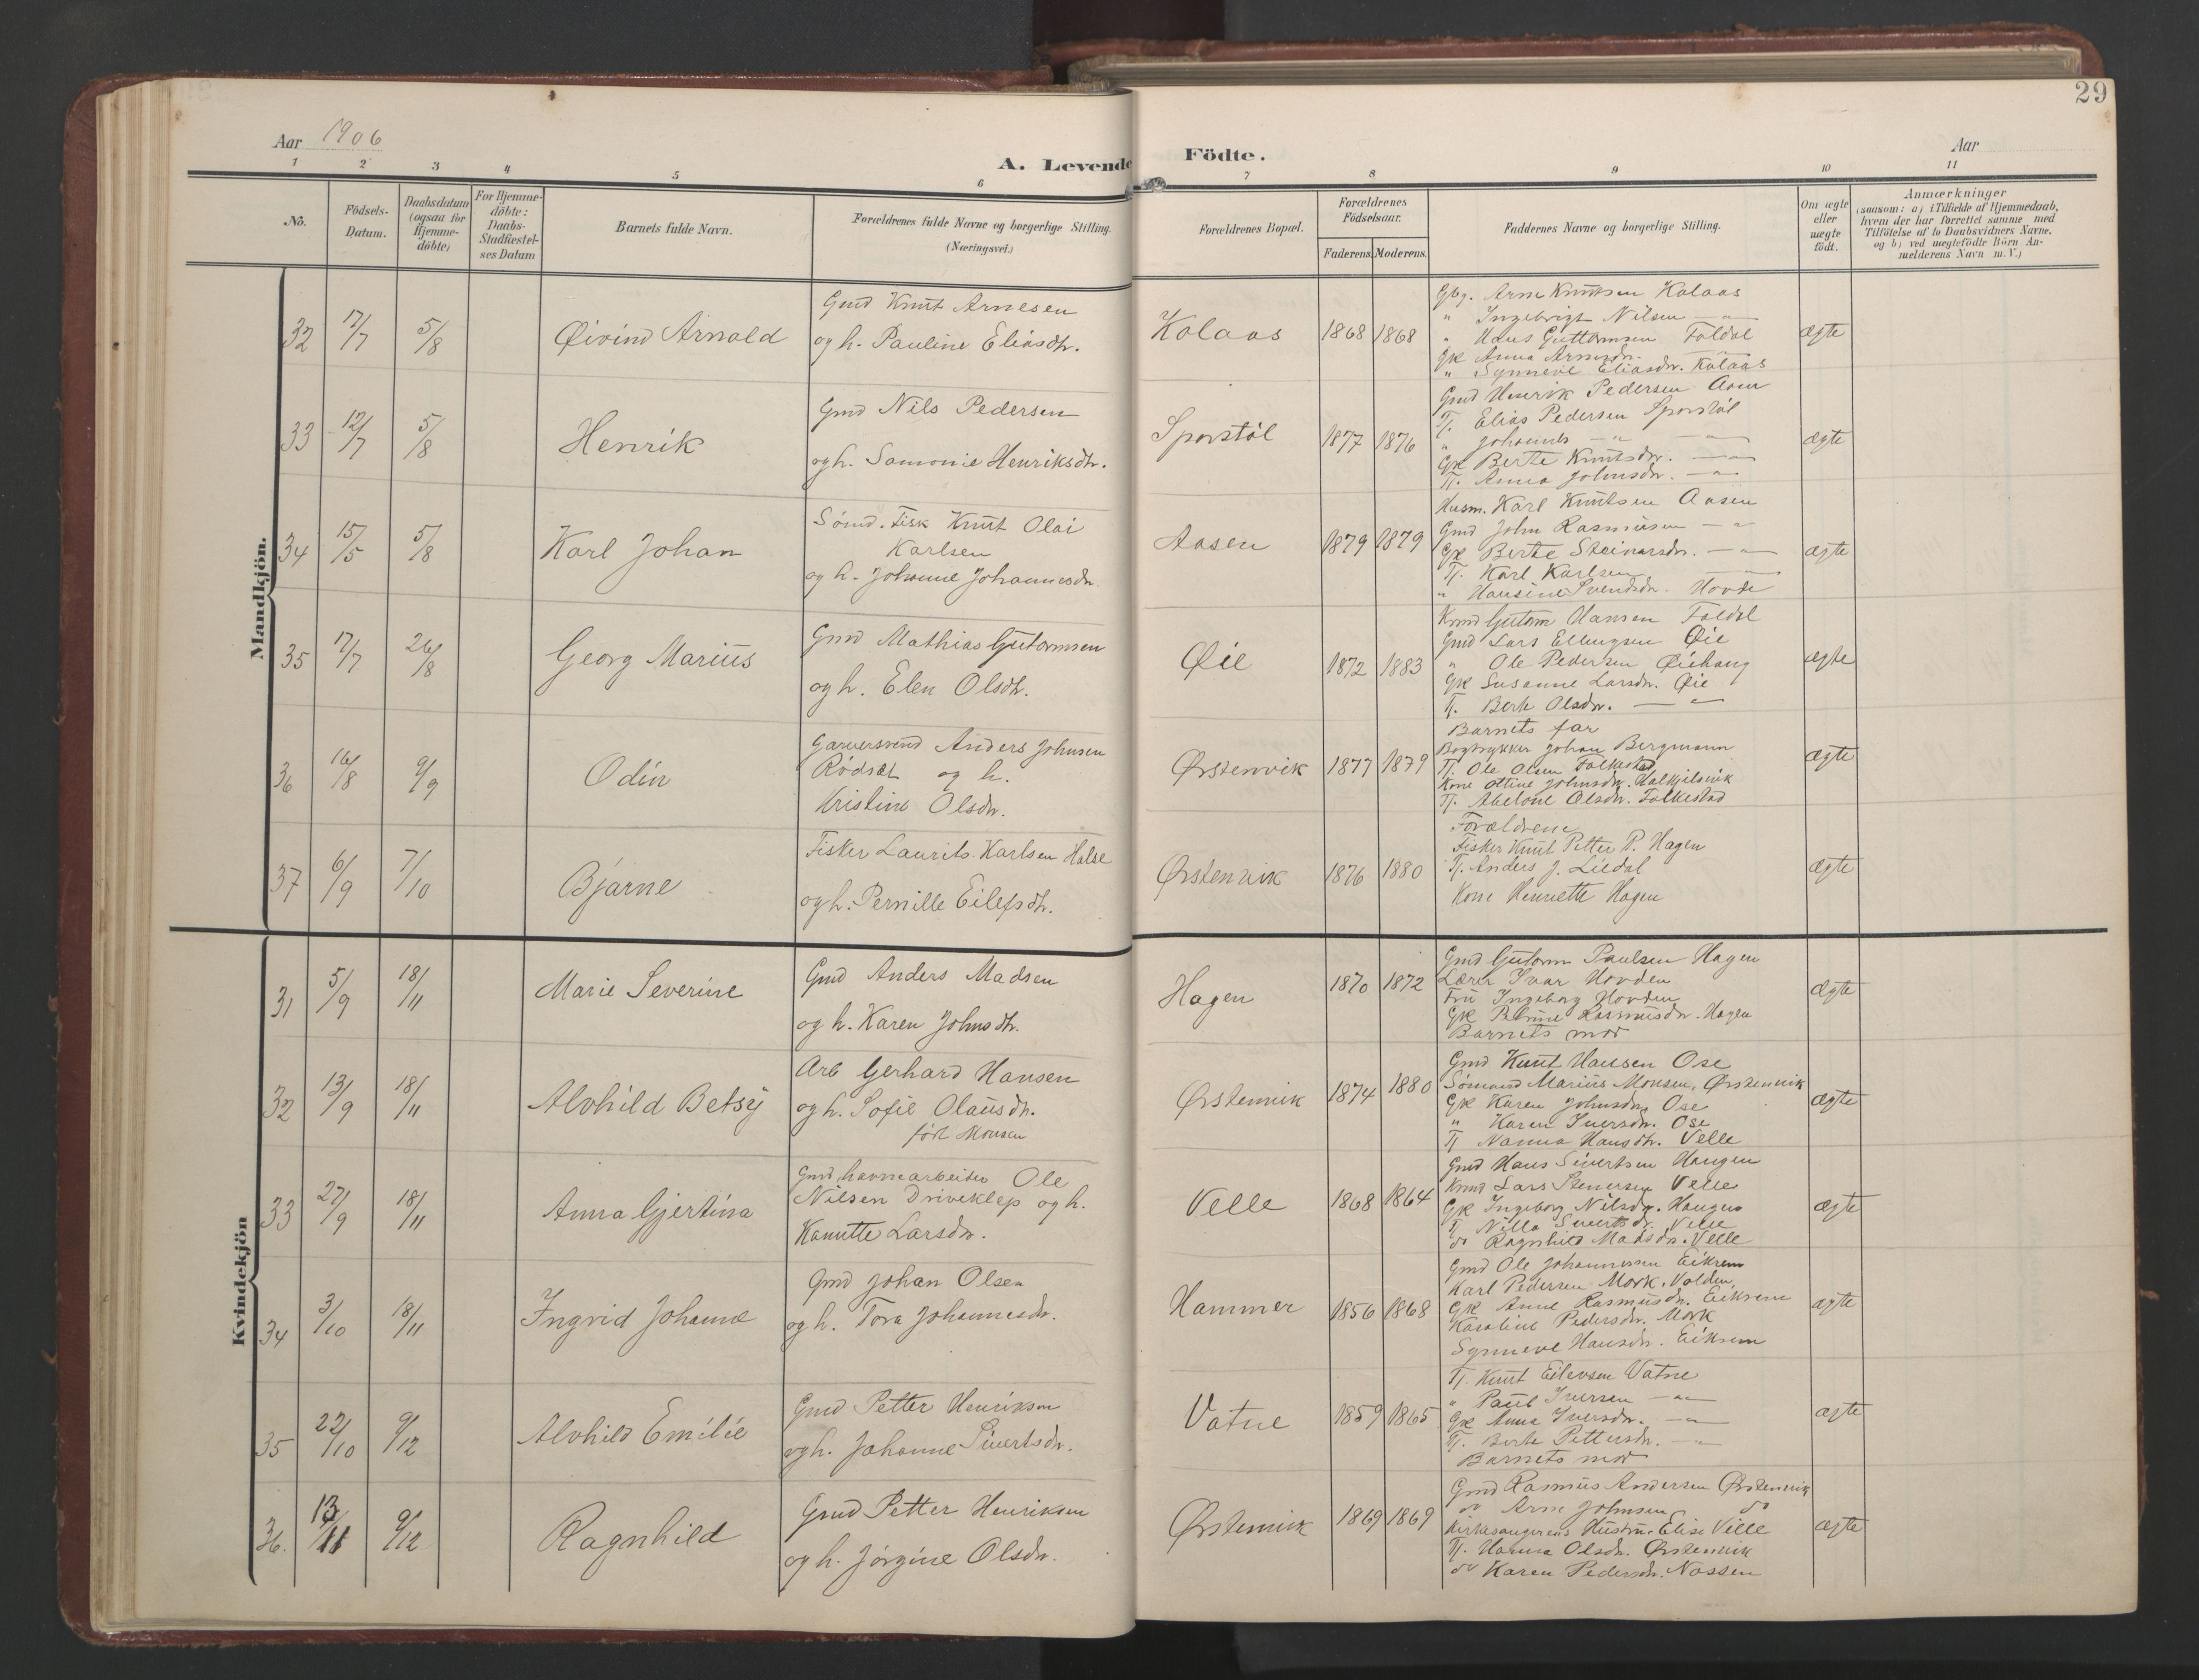 29
Aar 1906
Aar
A. Levende Födte.
1 2 3 4 5 6 7 8 9 10 11
No.
Födsels-Datum.
Daabsdatum (ogsaa for Hjemme-döbte)
For Hjemme-döbte: Daabs-Stadfæstel-ses Datum
Barnets fulde Navn.
Forældrenes fulde Navne og borgerlige Stilling. (Næringsvei.)
Forældrenes Bopæl.
Forældrenes Födselsaar.
Faderens. Moderens.
Faddernes Navne og borgerlige Stilling.
Om ægte eller uægte födt.
Anmærkninger
(saasom: a) i Tilfælde af Hjemmedaab,
hvem der har forrettet samme med
Tilföielse af to Daabsvidners Navne,
og b) ved uægtefödte Börn An-
melderens Navn m. V.)
Mandkjön.
32 17/7 5/8 Øivind Arnold
Gmd Knut Arnesen
og h. Pauline Eliasdtr.
Kolaas 1868 1868
Gbg. Arne Knutsen Kolaas
" Ingebrigt Nilsen — " —
" Hans Guttormsen Foldal
Gk Anna Arnesdr.
" Synneve Eliasdr. Kolaas
ægte
33 12/7 5/8 Henrik
Gmd Nils Pedersen
og h. Samonie Henriksdtr.
Sporstöl 1877 1876
Gmd Henrik Pedersen Aam
Tj. Elias Pedersen Sporstöl
" Johannes — " — — " —
Gk Berte Knutsdr. — " —
Tj. Anna Johnsdr. — " —
ægte
34 15/5 5/8 Karl Johan
Sömd. Fisk Knut Olai
Karlsen
og h. Johanne Johannesdr.
Aasen 1879 1879
Husm. Karl Knutsen Aasen
Gmd John Rasmusen — "
Gk Berte Steinarsdr. — " —
Tj. Karl Karlsen
" Hansine Svendsdr. Hovde
ægte
35 17/7 26/8 Georg Marius
Gmd Mathias Gutormsen
og h. Elen Olsdtr.
Øie 1872 1883
Kmd Gutorm Hansen Foldal
Gmd Lars Ellingsen Øie
" Ole Pedersen Øiehaug
Gk Susanne Larsdr. Øie
Tj. Berte Olsdr. — " —
ægte
36 16/8 9/9 Odin
Garversvend Anders Johnsen
Rödset og h.
Kristine Olsdr.
Ørstenvik 1877 1879
Barnets far
Bogtrykker Johan Bergmann
Tj. Ole Olsen Folkestad
Kone Ottine Johnsdr. Halkjelsvik
Tj. Abelone Olsdr. Folkestad
ægte
37 6/9 7/10 Bjarne
Fisker Laurits Karlsen Halse
og h. Pernille Eilefsdtr.
Ørstenvik 1876 1880
Forældrene
Fisker Knut Petter P. Hagen
Tj. Anders J. Liedal
Kone Henriette Hagen
ægte
Kvindekjön
31 5/9 18/11 Marie Severine
Gmd Anders Madsen
og h. Karen Johnsdtr.
Hagen 1870 1872
Gmd Gutorm Paulsen Hagen
Lærer Ivar Hovden
Fru Ingeborg Hovden
Gk Rasmusdr. Hagen
Barnets mor
ægte
32 13/9 18/11 Alvhild Betsy
Arb Gerhard Hansen
og h. Sofie Olausdr.
född Monsen
Ørstenvik 1874 1880
Gmd Knut Hansen Ose
Sömand Marius Monsen, Ørstenvik
Gk Karen Johnsdr. Ose
" Karen Iversdr. Ose
Tj Nanna Hansdtr. Velle
ægte
33 27/9 18/11 Anna Gjertina
Gmd havnearbeider Ole
Nilsen Driveklep og h.
Kanutte Larsdr.
Velle 1868 1864
Gmd Hans Sivertsen Haugen
Kmd Lars Stenersen Velle
Gk Ingeborg Nilsdr. Haugen
Tj Nilla Sivertsdr. Velle
do Ragnhild Madsdr. Velle
ægte
34 3/10 18/11 Ingrid Johanne
Gmd Johan Olsen
og h. Tora Johannesdr.
Hammer 1856 1868
Gmd Ole Johannesen Eikrem
Karl Pedersen Mork, Volden
Gk Anne Rasmusdr. Eikrem
Karoline Pedersdr. Mork
Synneve Hansdr. Eikrem
ægte
35 22/10 9/12 Alvhild Emilie
Gmd Petter Henriksen
og h. Johanne Sivertsdr.
Vatne 1859 1865
Tj. Knut Eilevsen Vatne
" Paul Iversen — " —
Gk Anna Iversdr. — " —
Tj. Berte Pettersdr. — " —
Barnets mor
ægte
36. 13/11 9/12 Ragnhild
Gmd Petter Henriksen
og h. Jörgine Olsdr.
Ørstenvik 1869 1869
Gmd Rasmus Andersen Ørstenvik
do Arne Johnsen do
Kirkesangerens Hustru Elise Velle
Tj. Hanna Olsdr. Ørstenvik
do Karen Pedersdr. Nossen
ægte